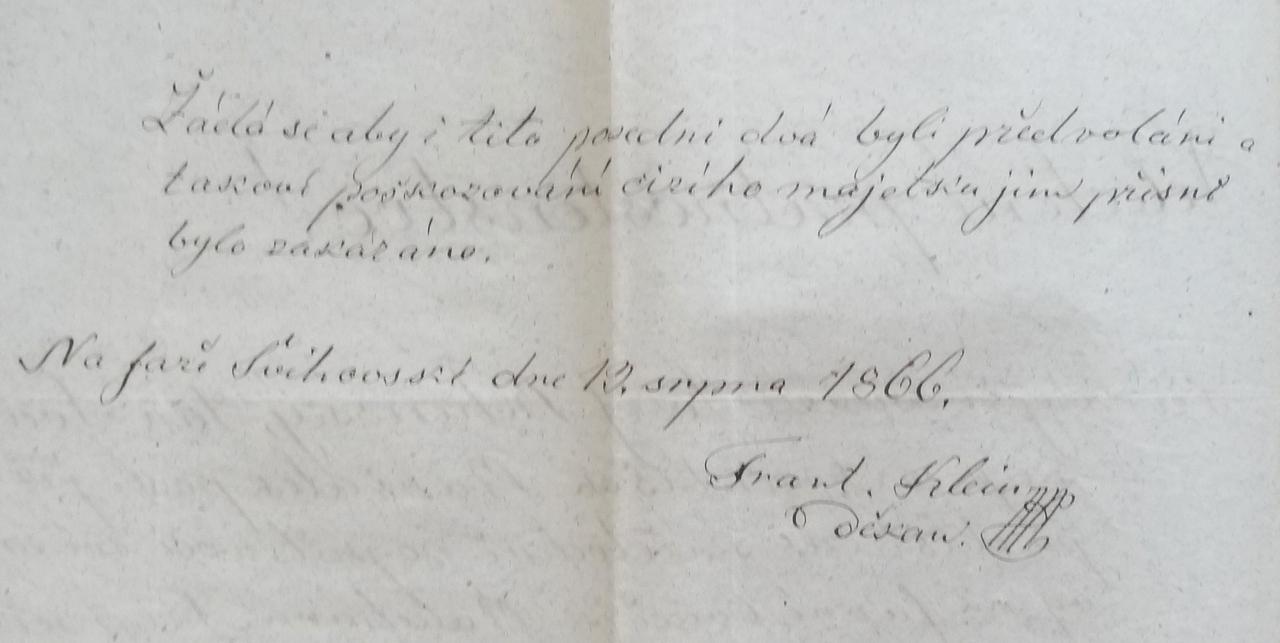 Žádá se aby i tito posední dvá byli předvoláni a
takové poškozování cizího majetku jim přísně
bylo zakázáno.
Na faře Švihovské dne 13. srpna 1866.
Frant. Klein
děkan.